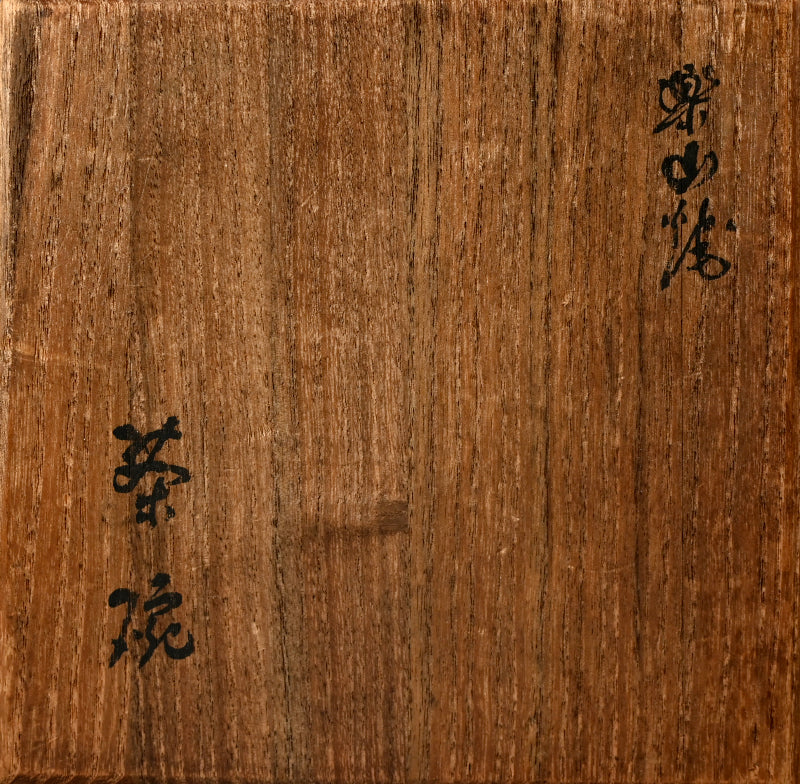 楽山焼
茶碗